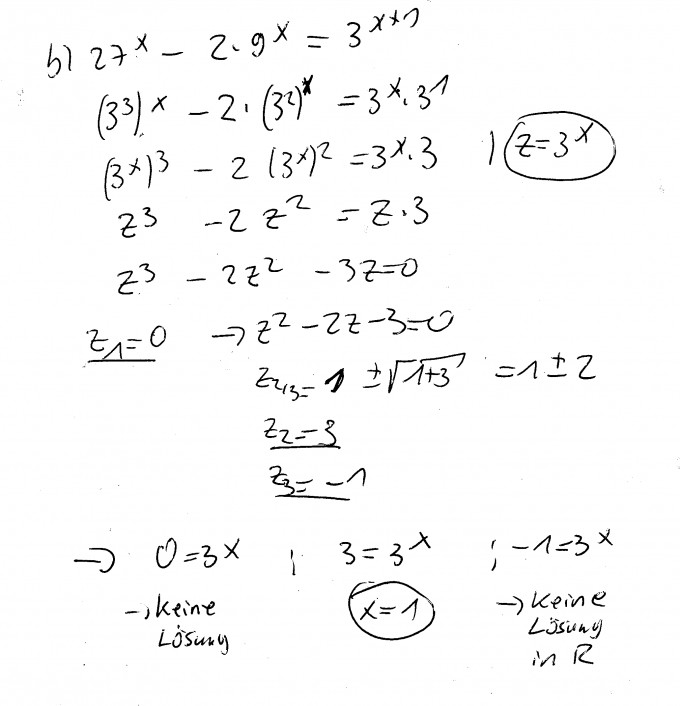 b) 27^x - 2·9^x = 3^(x+1)
(3^3)^x - 2·(3^2)^x = 3^x·3^1
(3^x)^3 - 2 (3^x)^2 = 3^x·3 | z=3^x
z^3 - 2z^2 = z·3
z^3 - 2z^2 - 3z=0
z_1=0 → z^2-2z-3=0
z_2/3= 1 ±√(1+3) =1±2
z_2=3
z_3=-1
→ 0=3^x ; 3=3^x ; -1=3^x
→ keine x=1 → keine
Lösung Lösung
in R